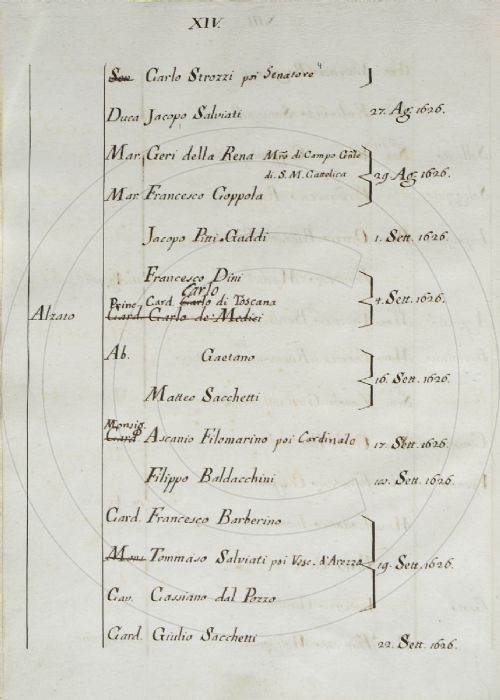 XIV.
Sen Carlo Strozzi poi Senatore
Duca Jacopo Salviati 27. Ag. 1626.
Mar. Geri della Rena Mro. di Campo Gnle
di S. M. Cattolica 29. Ag. 1626.
Mar. Francesco Coppola
Jacopo Pitti Gaddi 1. Sett. 1626.
Francesco Dini
Carlo
Princ. Card. Carlo di Toscana 4. Sett. 1626.
Alzato Card Carlo de' Medici
Ab. Gaetano
16. Sett. 1626.
Matteo Sacchetti
Monsig.
Card Ascanio Filomarino poi Cardinale 17. Sett. 1626.
Filippo Baldacchini Sett. 1626.
Card. Francesco Barberino
Mons Tommaso Salviati poi Vesc. d'Arezzo 19. Sett. 1626.
Cav. Cassiano dal Pozzo
Card. Giulio Sacchetti 22. Sett. 1626.